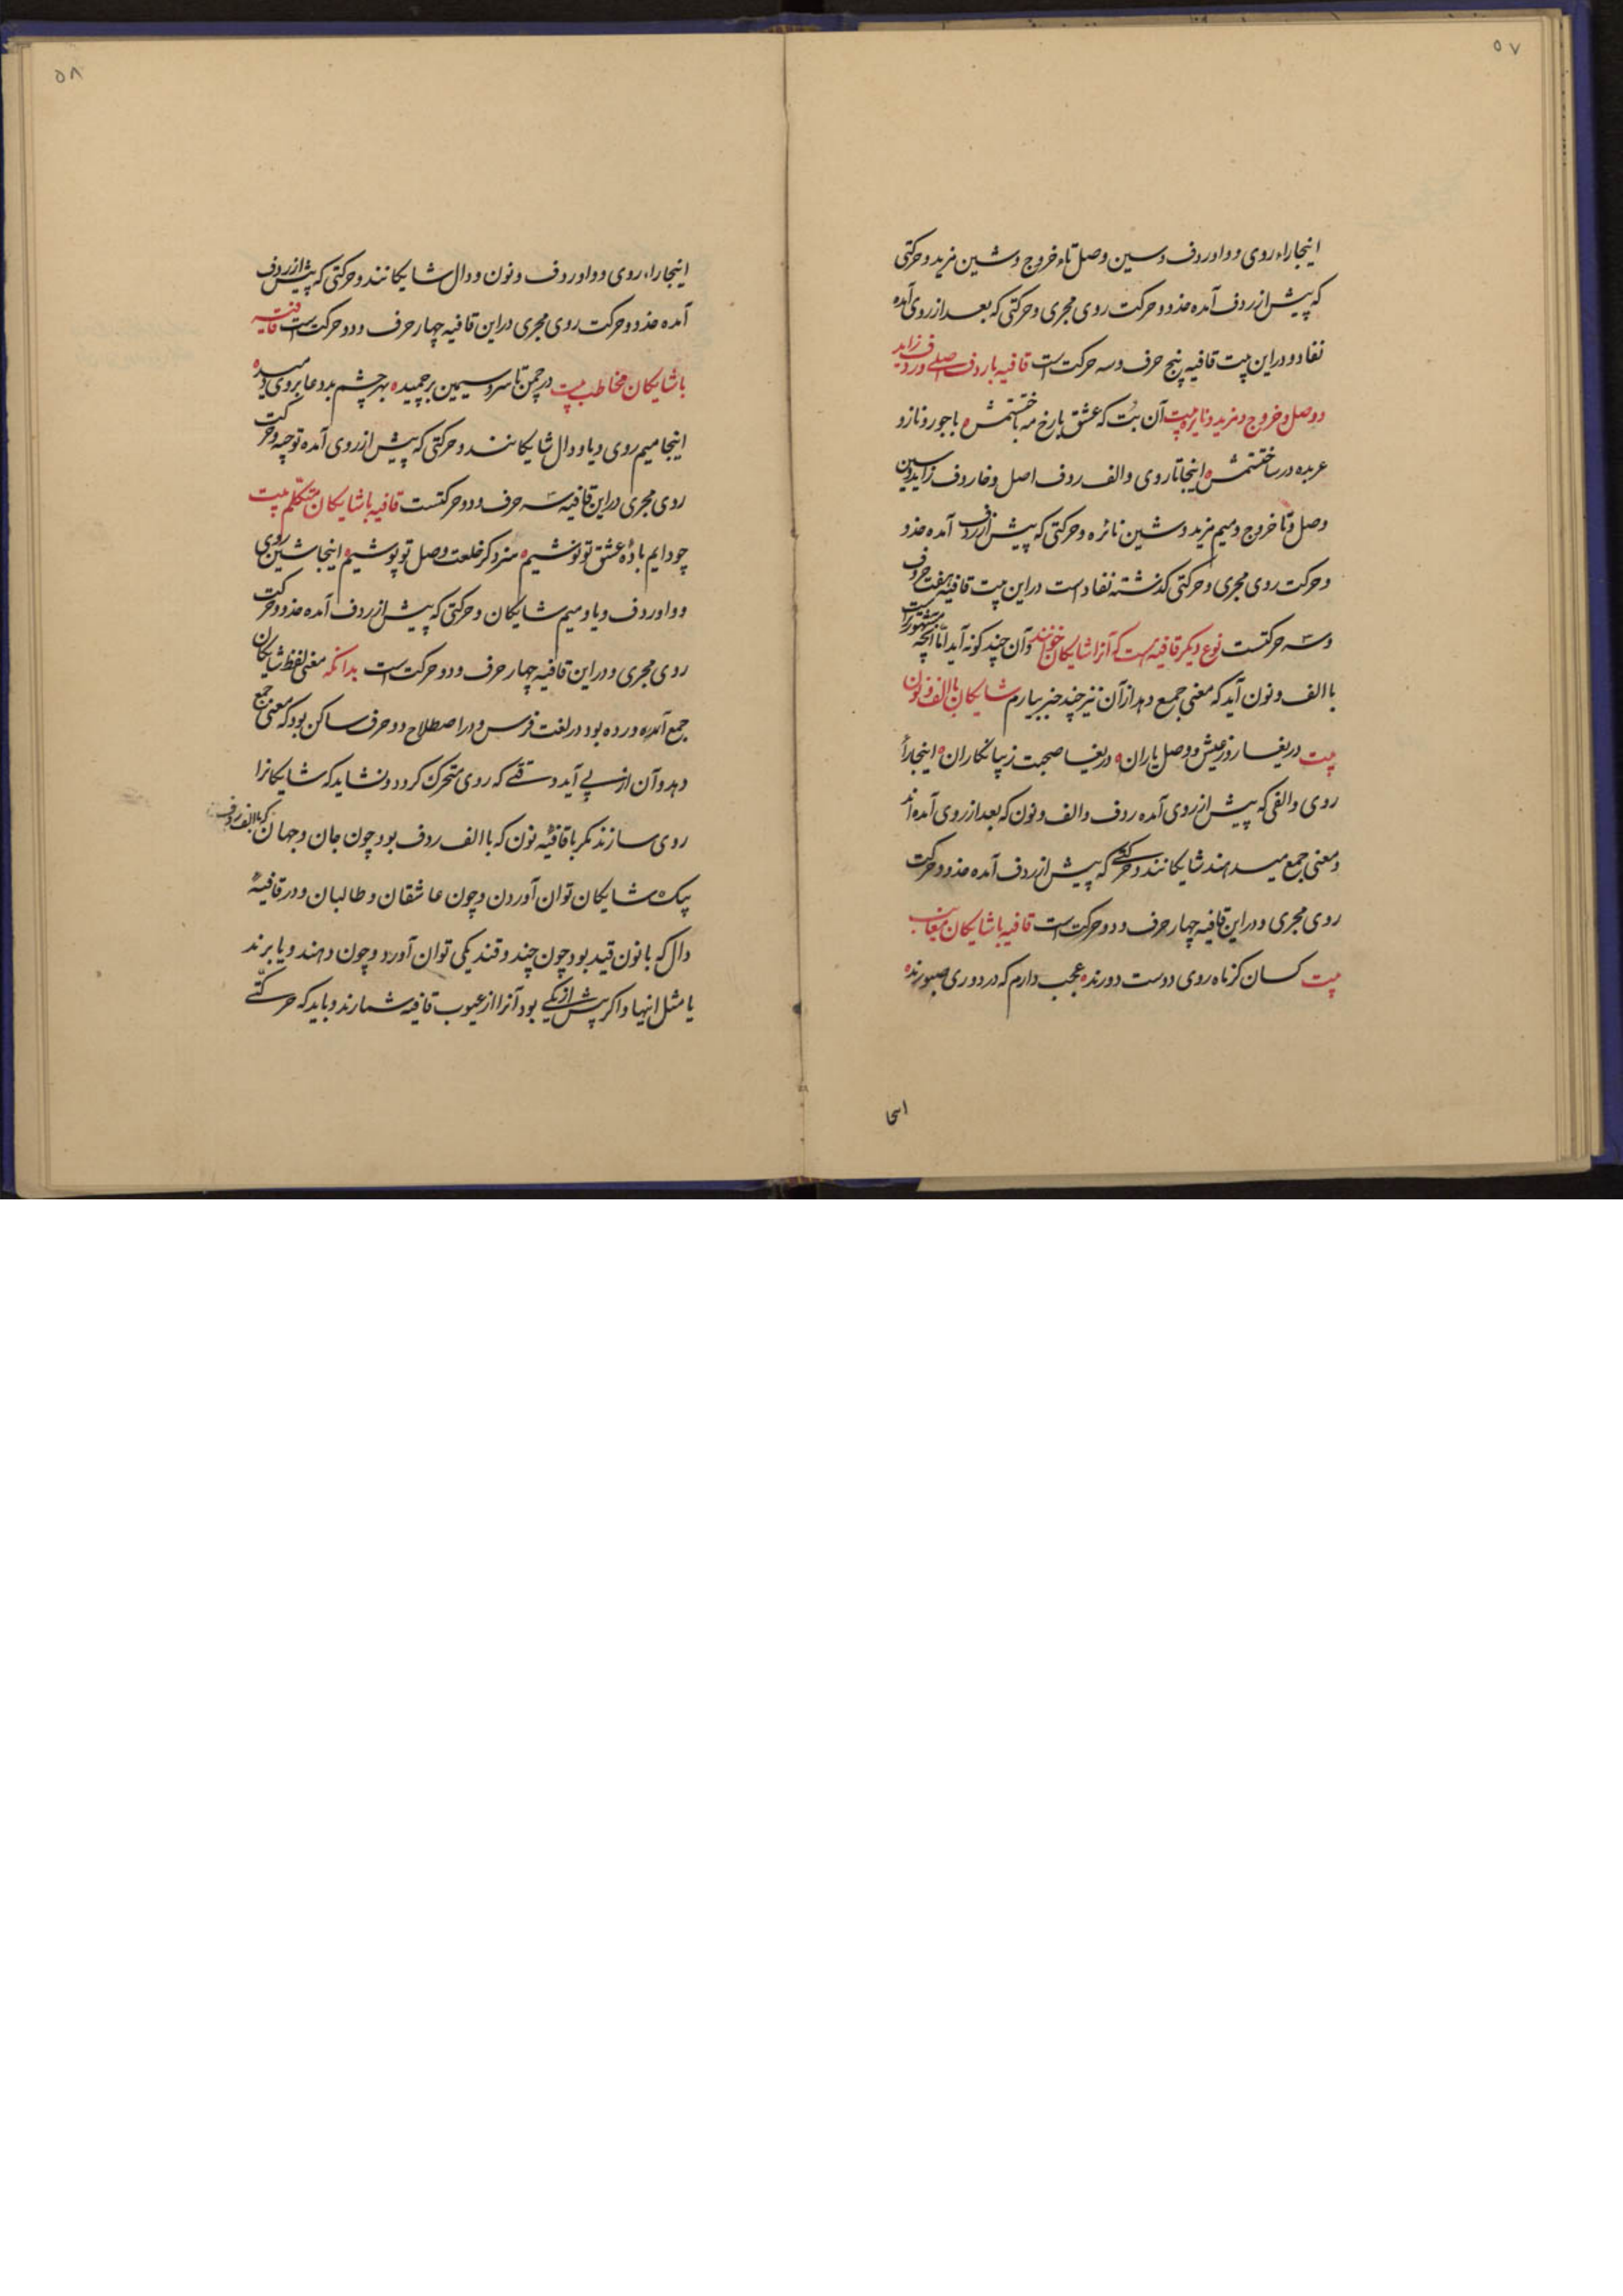 ۵۷
اینجا راء روی و واو ردف و سین وصل تاء خروج و شین مزید و حرکتی
که پیش از ردف آمده حذو و حرکت روی مجری و حرکتی که بعد از روی آمده
نفاد و در این بیت قافیه پنج حرف و سه حرکت است قافیه با ردف اصلی و ردف زاید
و وصل و خروج و مزید و نایره بیت آن بت که عشق با رخ مه باختستمش ه با جور و ناز و
عربده درساختستمش ه اینجا تا روی و الف ردف اصل و خا ردف زاید و سین
وصل و تا خروج و میم مزید و شین نائره و حرکتی که پیش از ردف آمده حذو
و حرکت روی مجری و حرکتی که گذشته نفاد است در این بیت قافیه هفت حروف
و سه حرکتست نوع دیکر قافیه است که آنرا شایکان خوانند و آن چند کونه آید اما آنچه مشهور است
با الف و نون آید که معنی جمع دهد از آن نیز چند چیز بیارم شایکان با الف و نون
بیت دریغا روز عیش و وصل یاران ه دریغا صحبت زیبا نکاران ه اینجا راء
روی و الفی که پیش از روی آمده ردف و الف و نون که بعد از روی آمده اند
و معنی جمع میدهند شایکانند و حرکتی که پیش از ردف آمده حذو و حرکت
روی مجری و در این قافیه چهار حرف و دو حرکت است قافیه با شایکان مغایب
بیت کسان کز ماه روی دوست دورند ه عجب دارم که در دوری صبورند ه
اینجا
۵۸
اینجا راء روی و واو ردف و نون و دال شایکانند و حرکتی که پیش از ردف
آمده حذو و حرکت روی مجری در این قافیه چهار حرف و دو حرکت است قافیه
با شایکان مخاطب بیت در چمن تا سرو سیمین بر چمیده ه بهر چشم بد دعا بر وی دمیده
اینجا میم روی و یا و دال شایکانند و حرکتی که پیش از روی آمده توجیه و حرکت
روی مجری در این قافیه سه حرف و دو حرکتست قافیه با شایکان متکلم بیت
چو دایم باده عشق تو نوشیم ه سزد کر خلعت وصل تو پوشیم ه اینجا شین روی
و واو ردف و یا و میم شایکان و حرکتی که پیش از ردف آمده حذو و حرکت
روی مجری و در این قافیه چهار حرف و دو حرکت است بدانکه معنی لفظ شایکان
جمع آورده بود در لغت فرس و در اصطلاح دو حرف ساکن بود که معنی جمع
دهد و آن از پی آید وقتی که روی متحرک کردد و نشاید که شایکانرا
روی سازند مکر با قافیه نون که با الف ردف بود چون جان و جهان که با الف ردف
یک شایکان توان آوردن و چون عاشقان و طالبان و در قافیه
دال که با نون قید بود چون چند و قند یکی توان آورد و چون دهند و یا برند
یا مثل اینها و اکر بیش از یکی بود آنرا از عیوب قافیه شمارند و باید که حرکتی